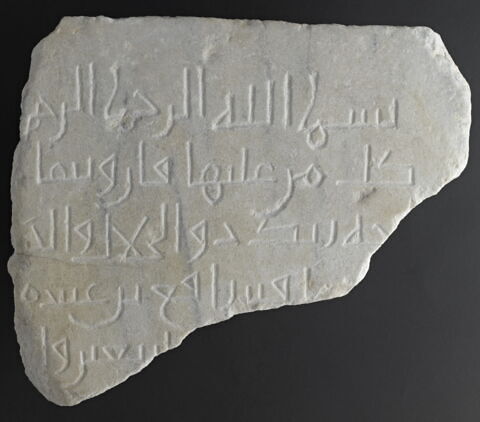 بسم الله الرحمن الرح
كل من عليها فان ويبقا
وجه ربك ذو الجلل والا
قبر نافع بن عبيده